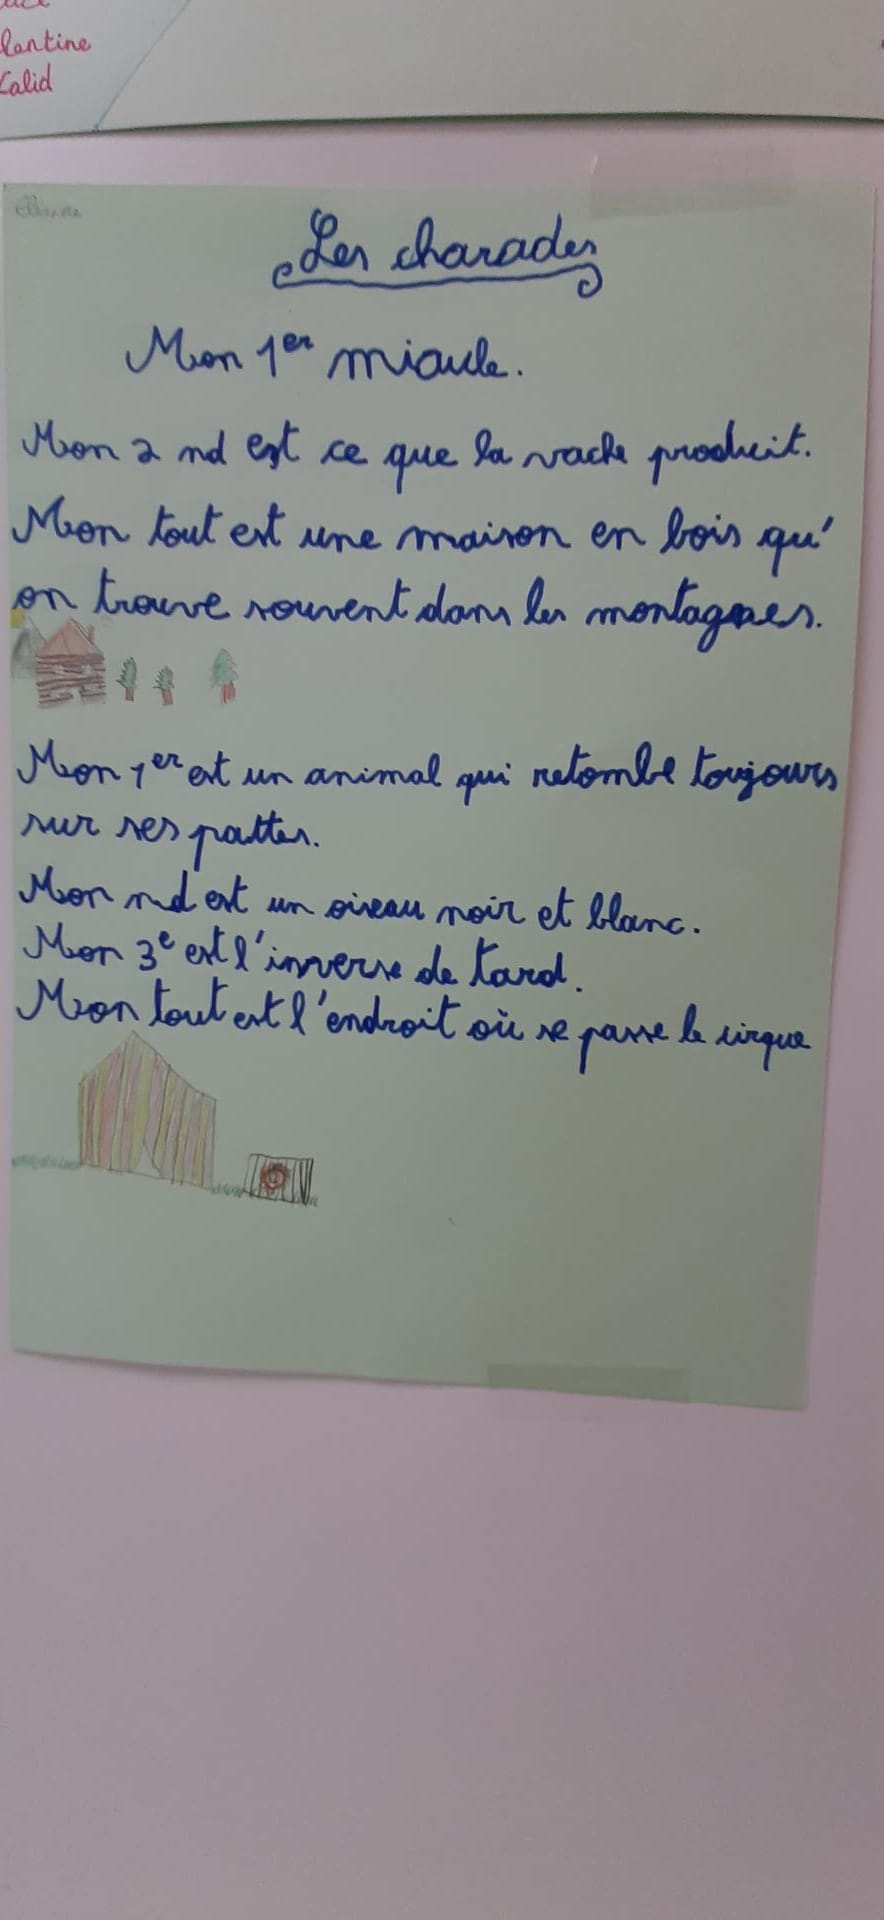 lentine
Calid
Les charades
Mon 1er miaule.
Mon 2 nd est ce que la vache produit.
Mon tout est une maison en bois qu'
on trouve souvent dans les montagnes.
Mon 1er est un animal qui retombe toujours
sur ses pattes.
Mon nd est un oiseau noir et blanc.
Mon 3e est l'inverse de tard.
Mon tout est l'endroit où se passe le cirque